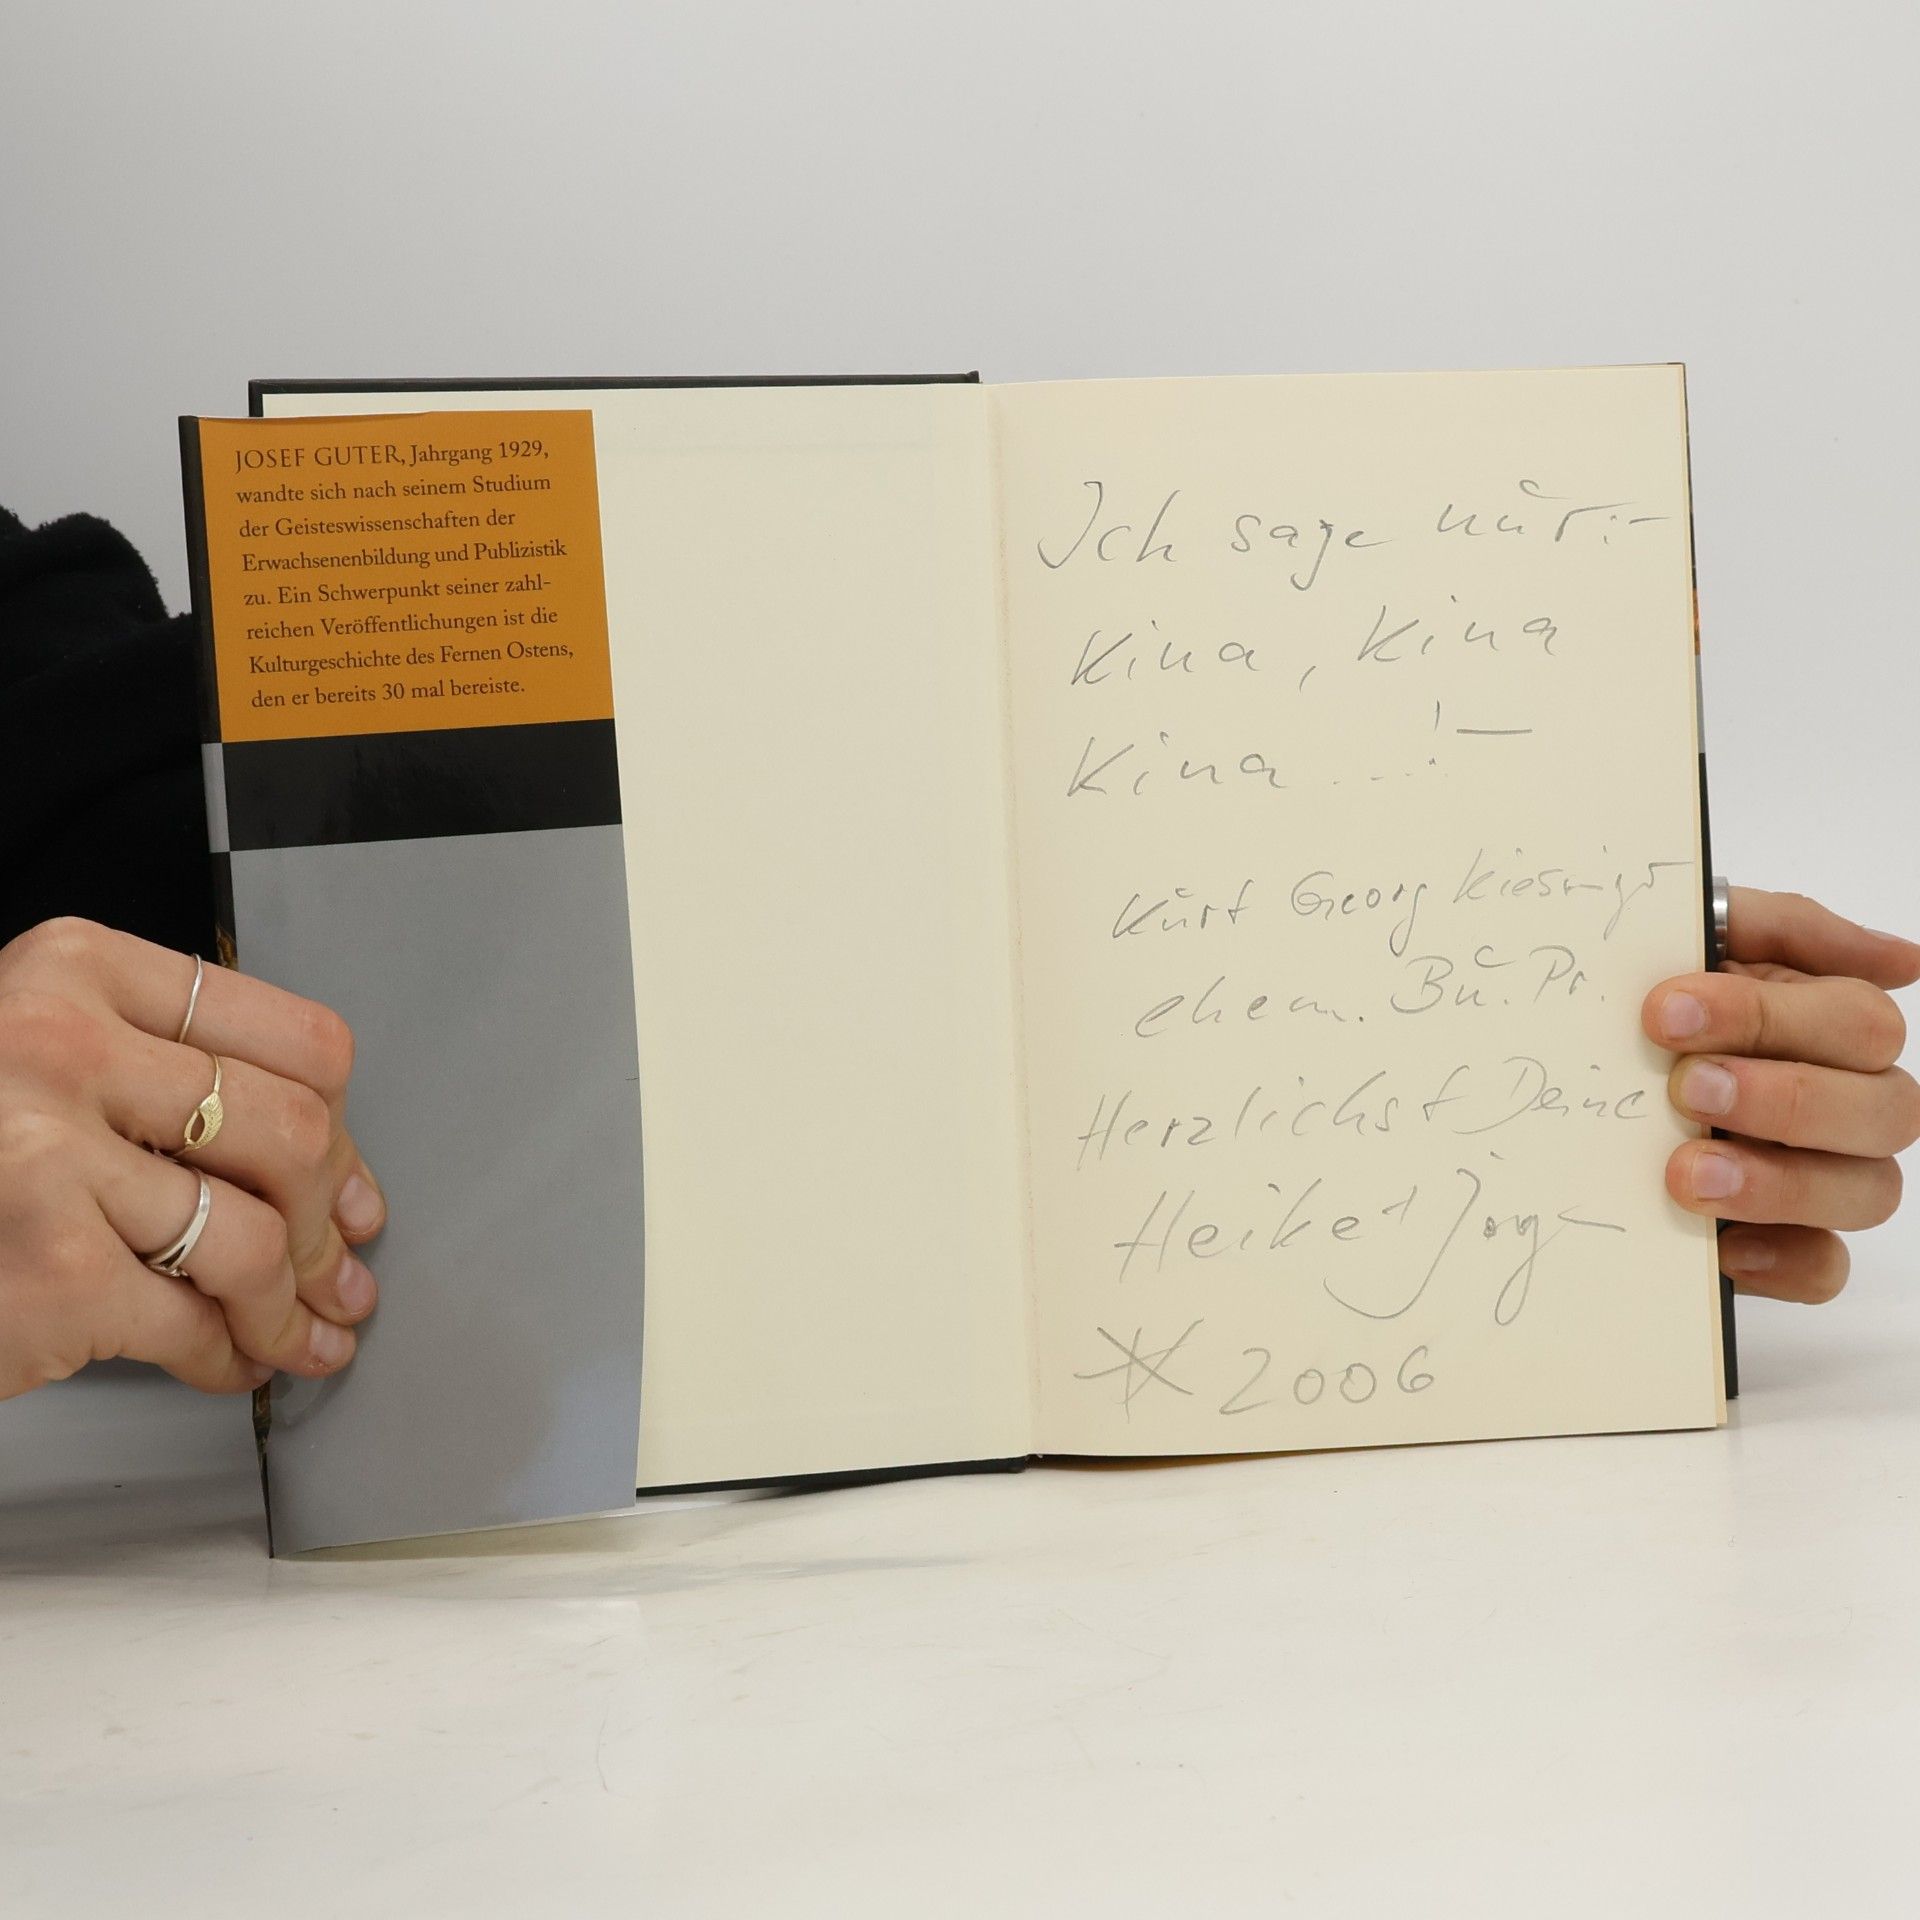 JOSEF GUTER, Jahrgang 1929,
wandte sich nach seinem Studium
der Geisteswissenschaften der
Erwachsenenbildung und Publizistik
zu. Ein Schwerpunkt seiner zahl-
reichen Veröffentlichungen ist die
Kulturgeschichte des Fernen Ostens,
den er bereits 30 mal bereiste.
Ich sage nur:-
Kina, Kina
Kina ...!—
Kurt Georg Kiesinger
ehem. Bu. Pr.
Herzlichst Deine
Heike + Jörg
2006